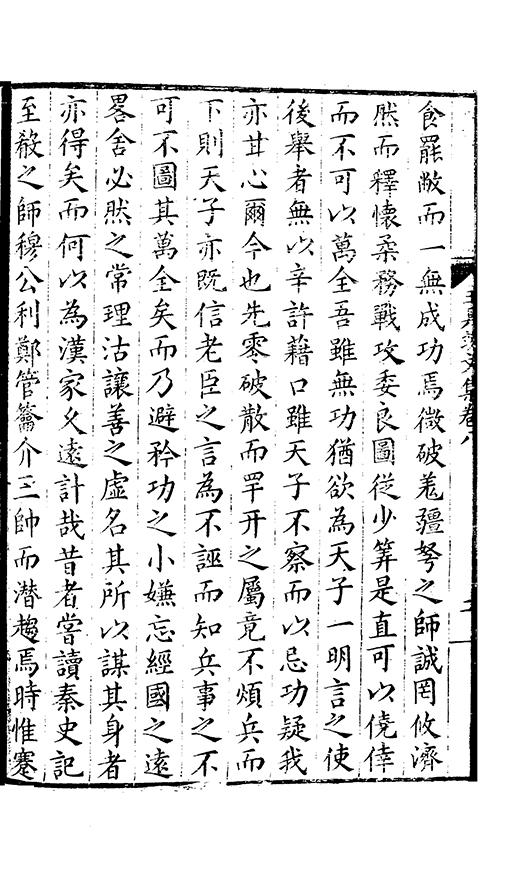 食罷敝而一無成功焉微破羗彊弩之師誠罔攸濟
然而釋懷柔務戰攻委良圖從少筭是直可以僥倖
而不可以萬全吾雖無功猶欲為天子一明言之使
後舉者無以辛許藉口雖天子不察而以忌功疑我
亦甘心爾今也先零破散而罕开之屬竟不煩兵而
下則天子亦既信老臣之言為不誣而知兵事之不
可不圖其萬全矣而乃避矜功之小嫌忘經國之遠
畧舍必然之常理沽讓善之虛名其所以謀其身者
亦得矣而何以為漢家久遠計哉昔者嘗讀秦史記
至殽之師穆公利鄭管籥介三帥而潜趨焉時惟蹇
文集卷八